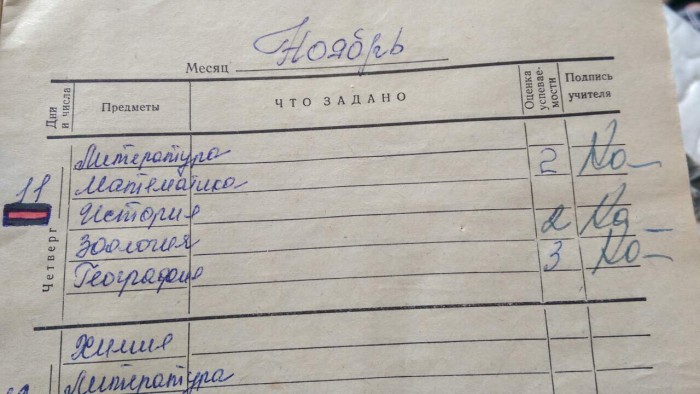 Месяц Ноябрь
Дни и числа Предметы ЧТО ЗАДАНО Оценка успеваемости Подпись учителя
Литература 2
Математика
11
История 2
Четверг
Зоология 3
География
Химия
Литература